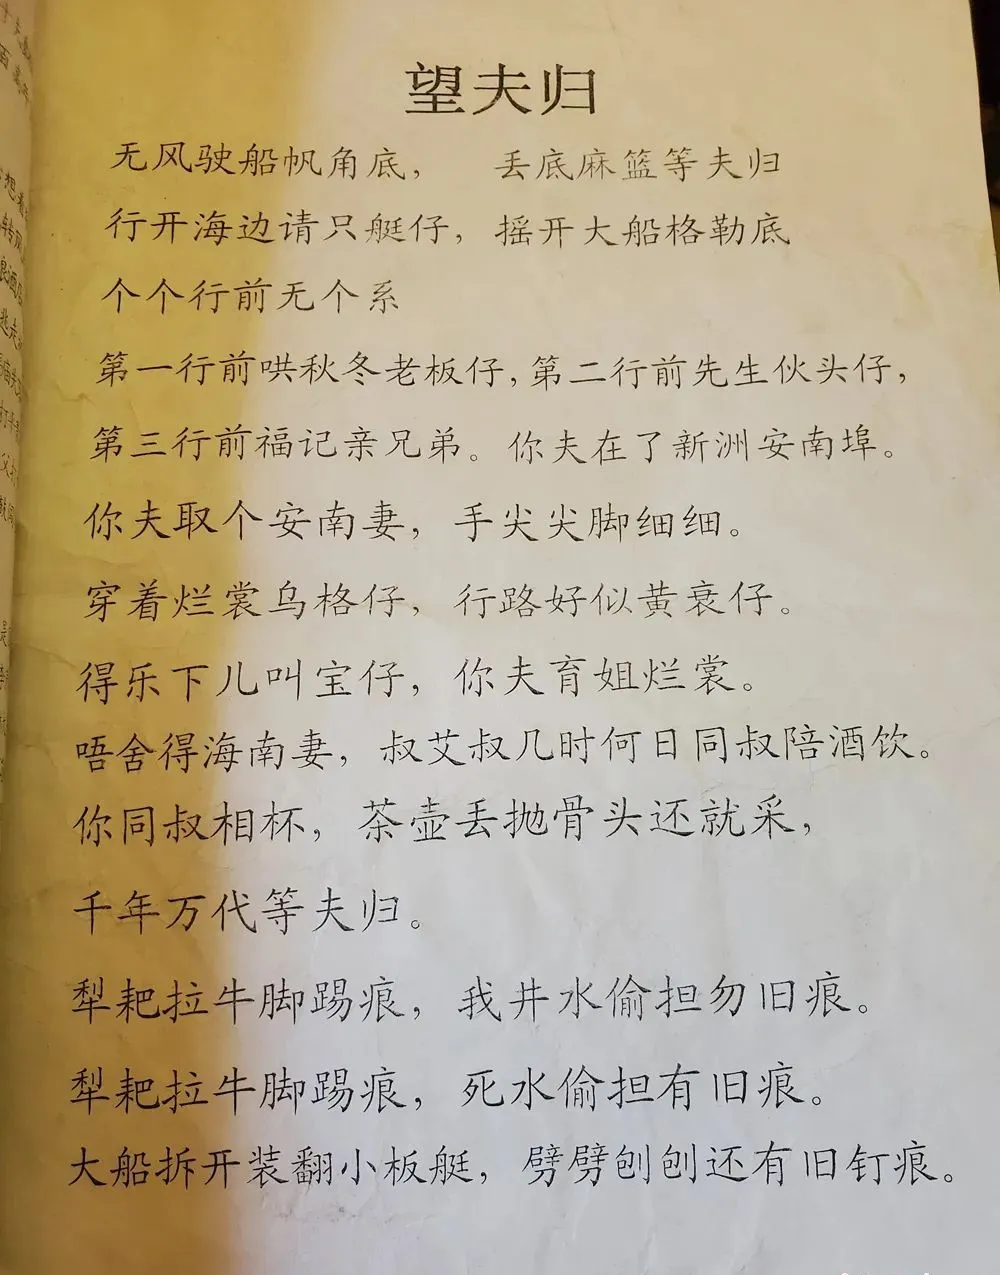 望夫归
无风驶船帆角底， 丢底麻篮等夫归
行开海边请只艇仔，摇开大船格勒底
个个行前无个系
第一行前哄秋冬老板仔，第二行前先生伙头仔，
第三行前福记亲兄弟。你夫在了新洲安南埠。
你夫取个安南妻，手尖尖脚细细。
穿着烂裳乌格仔，行路好似黄衰仔。
得乐下儿叫宝仔，你夫育姐烂裳。
唔舍得海南妻，叔艾叔几时何日同叔陪酒饮。
你同叔相杯，茶壶丢抛骨头还就采，
千年万代等夫归。
犁耙拉牛脚踢痕，我井水偷担勿旧痕。
犁耙拉牛脚踢痕，死水偷担有旧痕。
大船拆开装翻小板艇，劈劈刨刨还有旧钉痕。